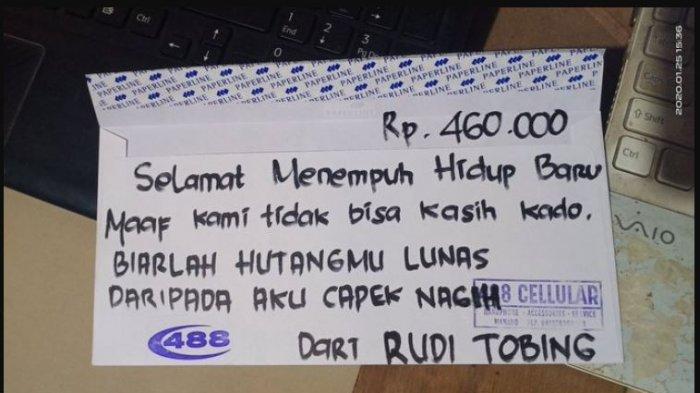 PAPERLINE PAPERLINE PAPERLINE PAPERLINE PAPERLINE
Rp. 460.000
Selamat Menempuh Hidup Baru
Maaf kami tidak bisa kasih kado.
BIARLAH HUTANGMU LUNAS
DARIPADA AKU CAPEK NAGIH
488 CELLULAR
HANDPHONE - ACCESSORIES - SERVICE
MANADO
488
Dari RUDI TOBING
2020.01.25 15:36
VAIO
Shift
Ctrl
Ctrl
End